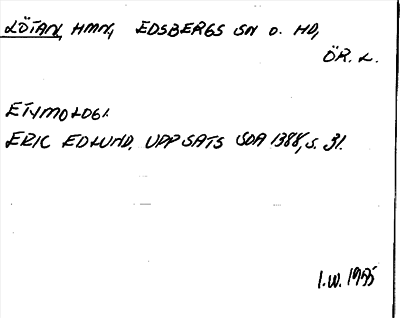 LÖTAN, HMN, EDSBERGS SN O. HD,
ÖR. L.
ETYMOLOGI.
ERIC EDLUND, UPPSATS SOA 1388, S. 31.
I.W. 1975